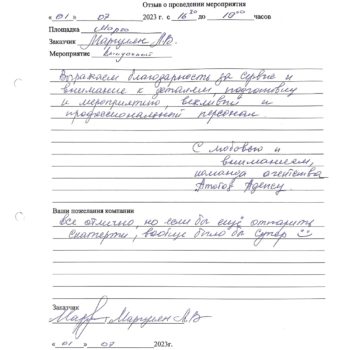 Отзыв о проведении мероприятия
« 01 » 07 2023 г. с 16²⁰ до 19⁰⁰ часов
Площадка «Марго
Заказчик Маргулен А.В.
Мероприятие Выпускной
Выражаем благодарность за сервис и
внимание к деталям, подготовку
к мероприятию, вежливый и
профессиональный персонал.
С любовью и
вниманием,
команда агентства
Ваши пожелания компании
все отлично, но если бы ещё отпарить
скатерти, вообще было бы супер
Заказчик
Маргулен А.В
« 01 » 07 2023г.